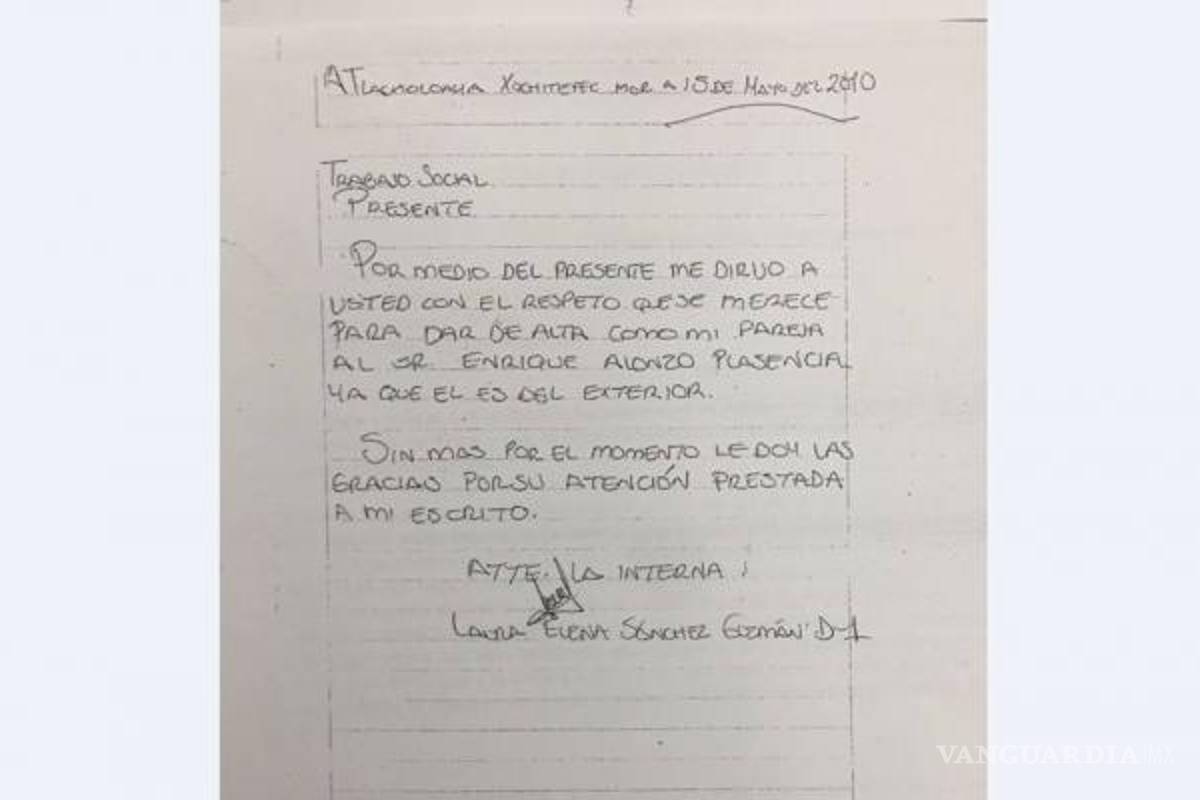 ATLACHOLOAYA XOCHITEPEC MOR A 15 DE MAYO DEL 2010
TRABAJO SOCIAL
PRESENTE
POR MEDIO DEL PRESENTE ME DIRIJO A
USTED CON EL RESPETO QUE SE MERECE
PARA DAR DE ALTA COMO MI PAREJA
AL SR. ENRIQUE ALONZO PLASENCIA
YA QUE EL ES DEL EXTERIOR.
SIN MAS POR EL MOMENTO LE DOY LAS
GRACIAS POR SU ATENCIÓN PRESTADA
A MI ESCRITO.
ATTE. LA INTERNA :
LAURA ELENA SÁNCHEZ GUZMÁN D-1
VANGUARDIA MX